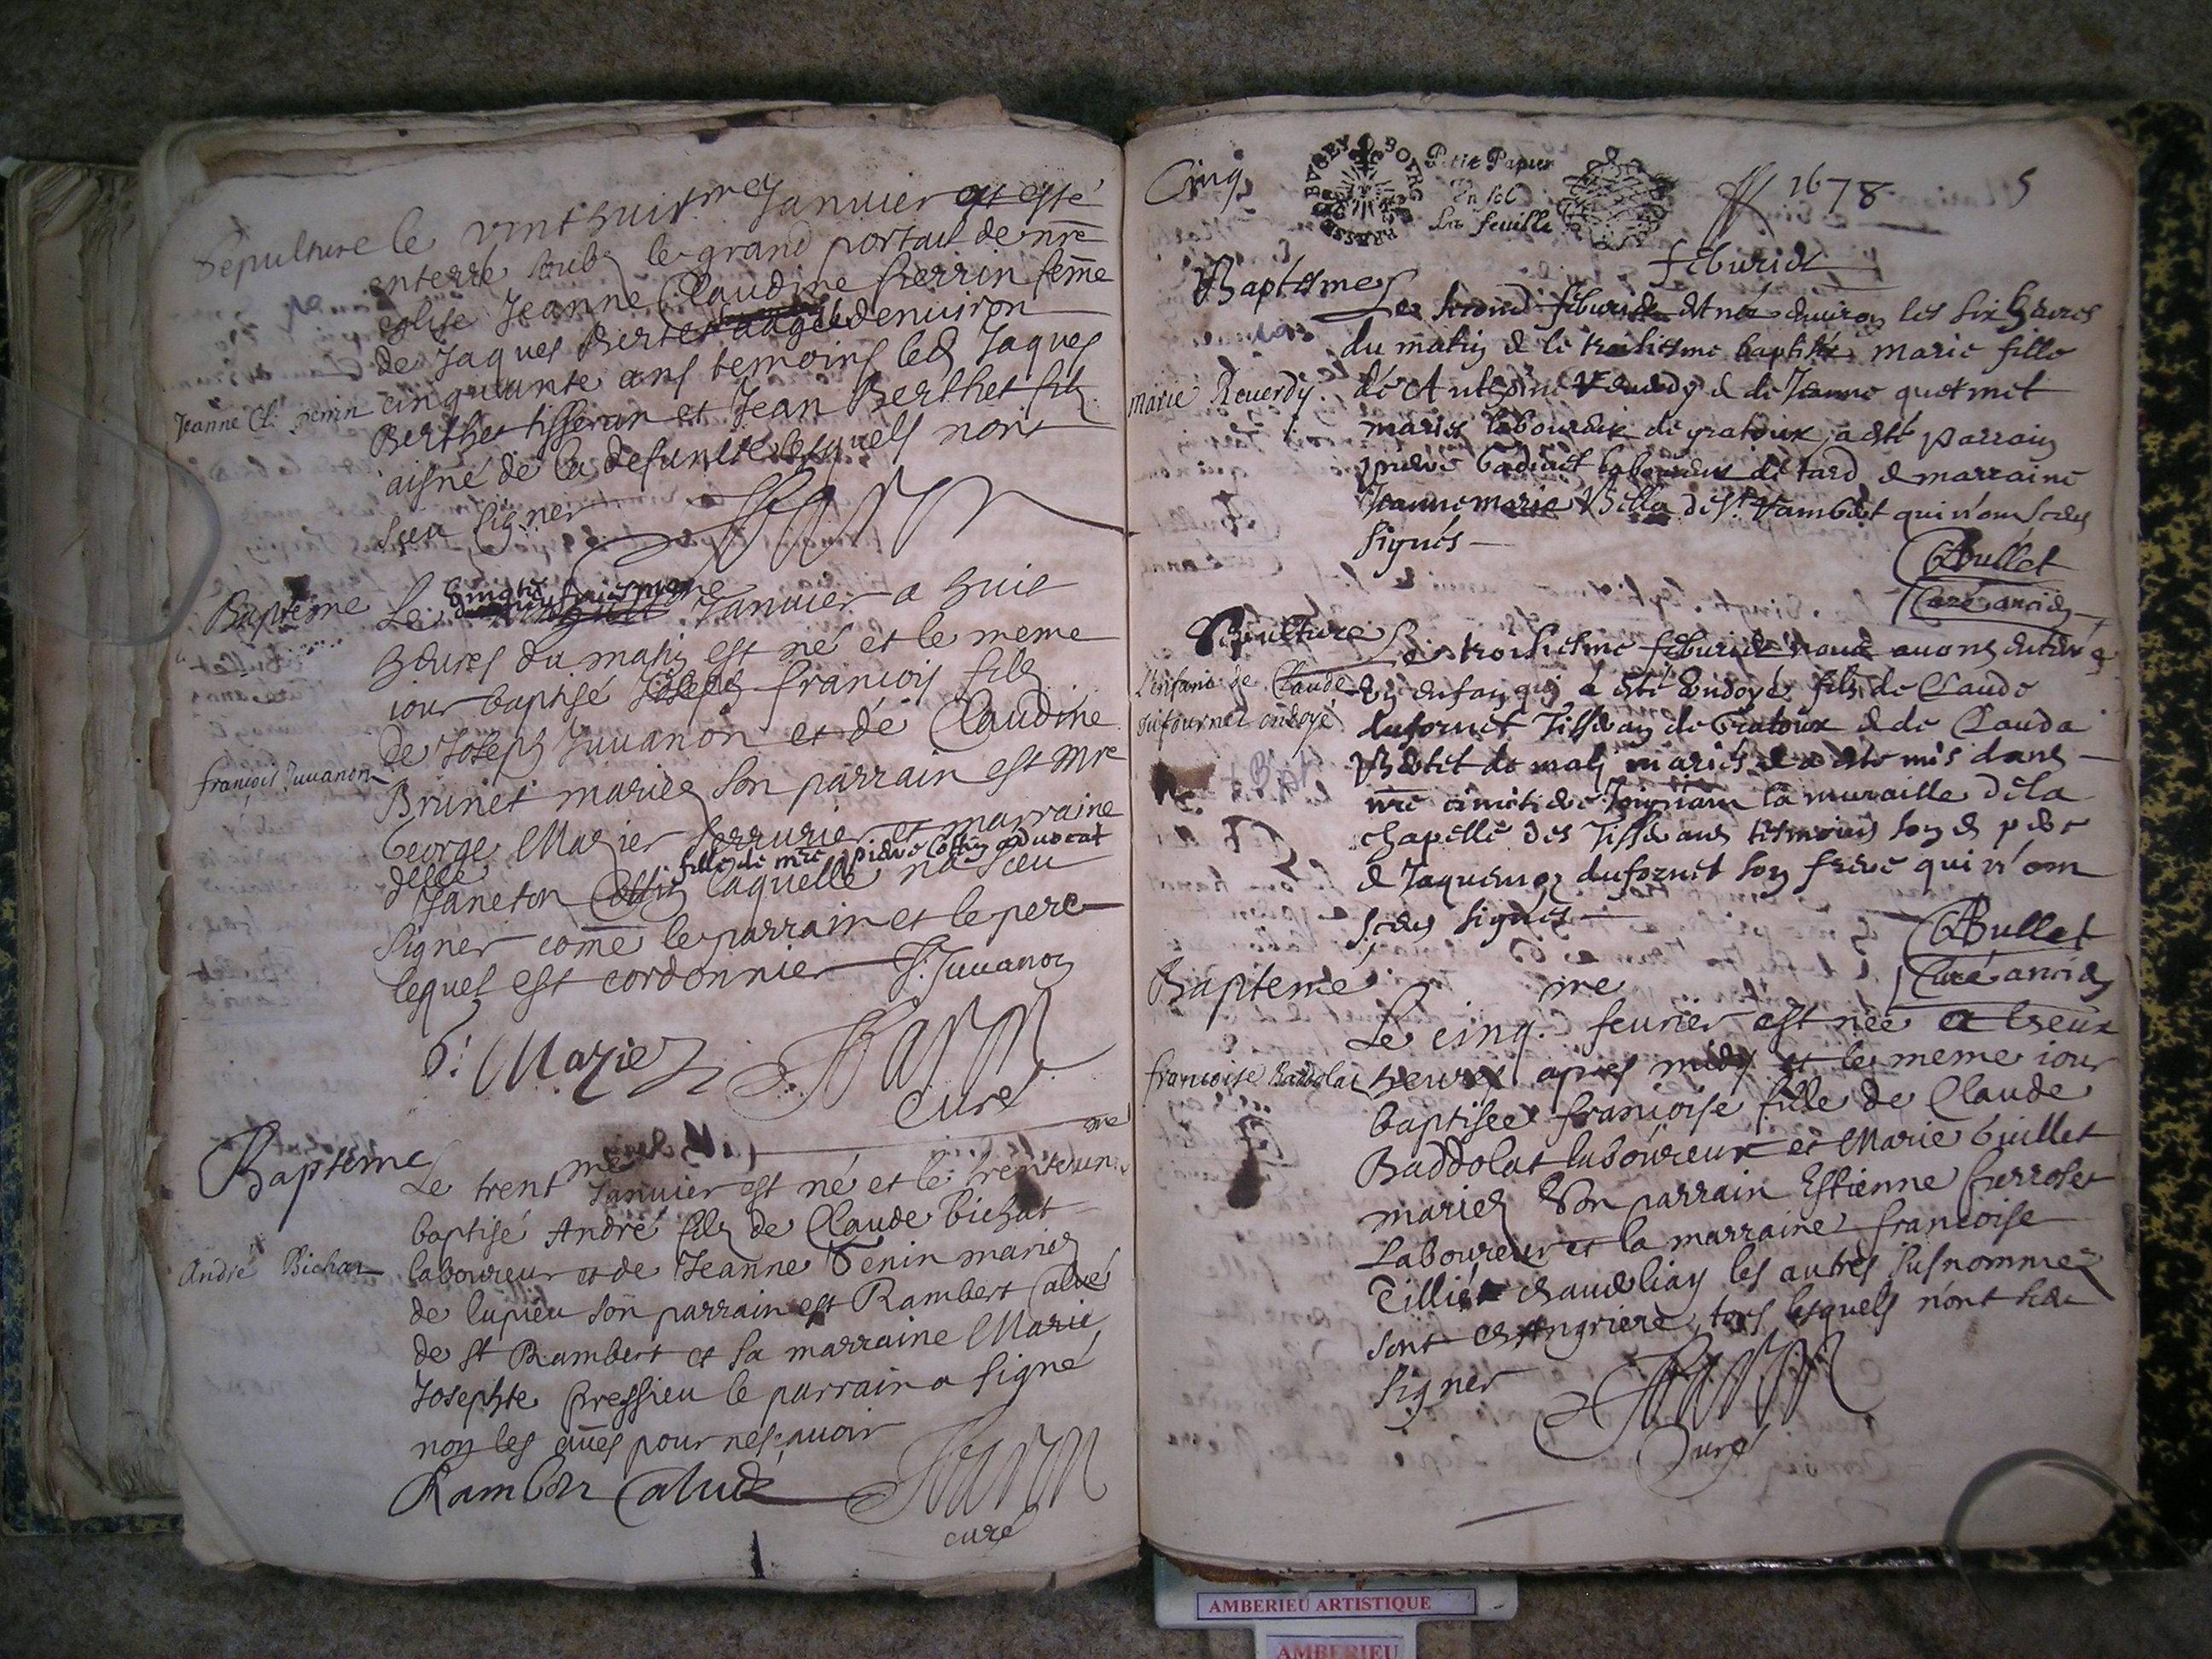 Sepulture le vint huit me Janvier est esté
enterré soub le grand portail de nre
eglise Jeanne Claudine perrin feme
de Jaques Berthet aagée denuiron
cinquante ans temoins led Jaques
Jeanne Cl. perrin
Berthet tisseran et Jean Berthet fils
aisné de la defuncte lesquels nont
sceu signer
Bapteme
Le Januier a huit
heures du matin est né et le meme
iour baptisé françois fils
de Joseph Juuanon et de Claudine
françois Juuanon
Brunet mariés son parrain est Mre
George Mazier serrurier et marraine
fille de mre pierre advocat
delle Janeton laquelle na sceu
signer come le parrain et le pere
lequel est cordonnier J. Juuanon
G. Mazier
curé
Bapteme
Le trent me Januier est né et le trente un me
baptisé André fils de Claude bichat
André Bichat
laboureur et de Jeanne Genin mariés
de lupieu son parrain est Rambert Calué
de st Rambert et sa marraine Marie
Josephte Pressieu le parrain a signé
non les aues pour nesçauoir
Rambert Calué
curé
Cinq
BVGEY BOVRG
Petit Papier
Un sol
La feuille
1678
5
feburier
Baptesme
Le second feburier est née enuiron les six heures
du matin & le troisiesme baptisée marie fille
marie Reuerdy
de Anthoine Reuerdy & de Jeanne quetmet
mariés laboureur de gratoux a esté parrain
pierre laboureur de tard & marraine
Jeanne marie Bella de st rambert qui n'ont sceu
signés
Bullet
Curé ancien
Sepulture
Le troisiesme feburier nous auons enterré
L'enfant de Claude
dufournet ondoyé
un enfan qui a esté Endoyé fils de Claude
dufornet Tisseran de Gratoux & de Clauda
mariés & a esté mis dans
nre cimitiere Joignant la muraille de la
chapelle des Tisserans tesmoins son d pere
& Jaquemoz dufornet son frere qui n'ont
sceu signés
Bullet
Curé ancien
Bapteme
Le cinq me feurier est née a
françoise Baddolat
heures apres midy et le meme iour
baptisee françoise fille de Claude
Baddolat laboureur et Marie Guillet
mariés Son parrain Estienne
Laboureur et la marraine françoise
Tillier les autres susnommez
sont tous lesquels n'ont sceu
signer
Curé
AMBERIEU ARTISTIQUE
AMBERIEU